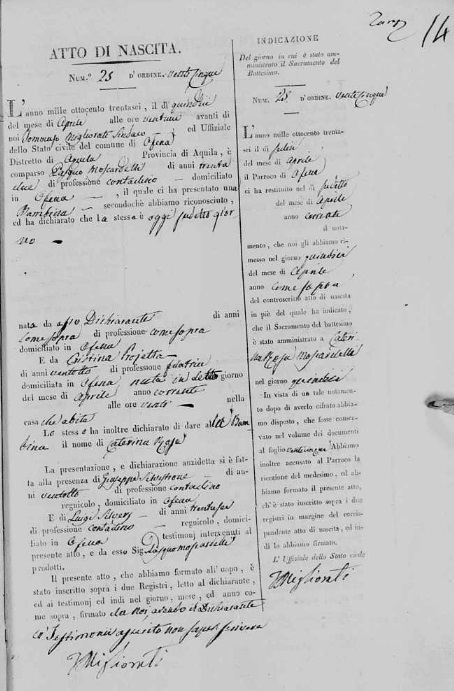 14
ATTO DI NASCITA.
Num.° 25 d'ordine venticinque
L'anno mille ottocento trentasei, il dì quindici
del mese di Aprile alle ore ventuno avanti di
noi Tommaso Migliorati Sindaco ed Uffiziale
dello Stato civile del comune di Ofena
Distretto di Aquila Provincia di Aquila, è
comparso Pasquale Moscardelli di anni trenta
due di professione contadino domiciliato
in Ofena il quale ci ha presentato una
Bambina secondochè abbiamo riconosciuto,
ed ha dichiarato che la stessa è oggi pudetto gior
no
nata da esso Dichiarante di anni
come sopra di professione come sopra
domiciliato in Ofena
E da Cristina
di anni ventotto di professione filatrice
domiciliata in Ofena nata in detto giorno
del mese di Aprile anno corrente
alle ore venti nella
casa che abita
Lo stesso ha inoltre dichiarato di dare alla Bam
bina il nome di Caterina Rosa
La presentazione, e dichiarazione anzidetta si è fat-
ta alla presenza di Giuseppe Silvestrone di an-
ni ventotto di professione contadino
regnicolo, domiciliato in Ofena
E di Luigi Silveri di anni trentasei
di professione contadino regnicolo, domici-
liato in Ofena testimonj intervenuti al
presente atto, e da esso Sig. Pasquale Moscardelli
prodotti.
Il presente atto, che abbiamo formato all'uopo, è
stato inscritto sopra i due Registri, letto al dichiarante,
ed ai testimonj indi nel giorno, mese, ed anno co-
me sopra, firmato da Noi avendo il Dichiarante
e Testimoni asserito non saper scrivere
Migliorati
INDICAZIONE
Del giorno in cui è stato am-
ministrato il Sacramento del
Battesimo.
Num. 25 d'ordine venticinque
L'anno mille ottocento trenta-
sei il dì sedici
del mese di Aprile
il Parroco di Ofena
ci ha restituito nel dì
del mese di Aprile
anno corrente
il nota-
mento, che noi gli abbiamo ri-
messo nel giorno quindici
del mese di Aprile
anno come sopra
del controscritto atto di nascita
in piè del quale ha indicato,
che il Sacramento del battesimo
è stato amministrato a Cateri
na Rosa Moscardelli
nel giorno quindici
In vista di un tale notamen-
to dopo di averlo cifrato abbia-
mo disposto, che fosse conser-
vato nel volume dei documenti
al foglio venticinque Abbiamo
inoltre accusato al Parroco la
ricezione del medesimo, ed ab-
biamo formato il presente atto,
ch'è stato inscritto sopra i due
registri in margine del corris-
pondente atto di nascita, ed in-
di lo abbiamo firmato.
L'Uffiziale dello Stato civile
Migliorati